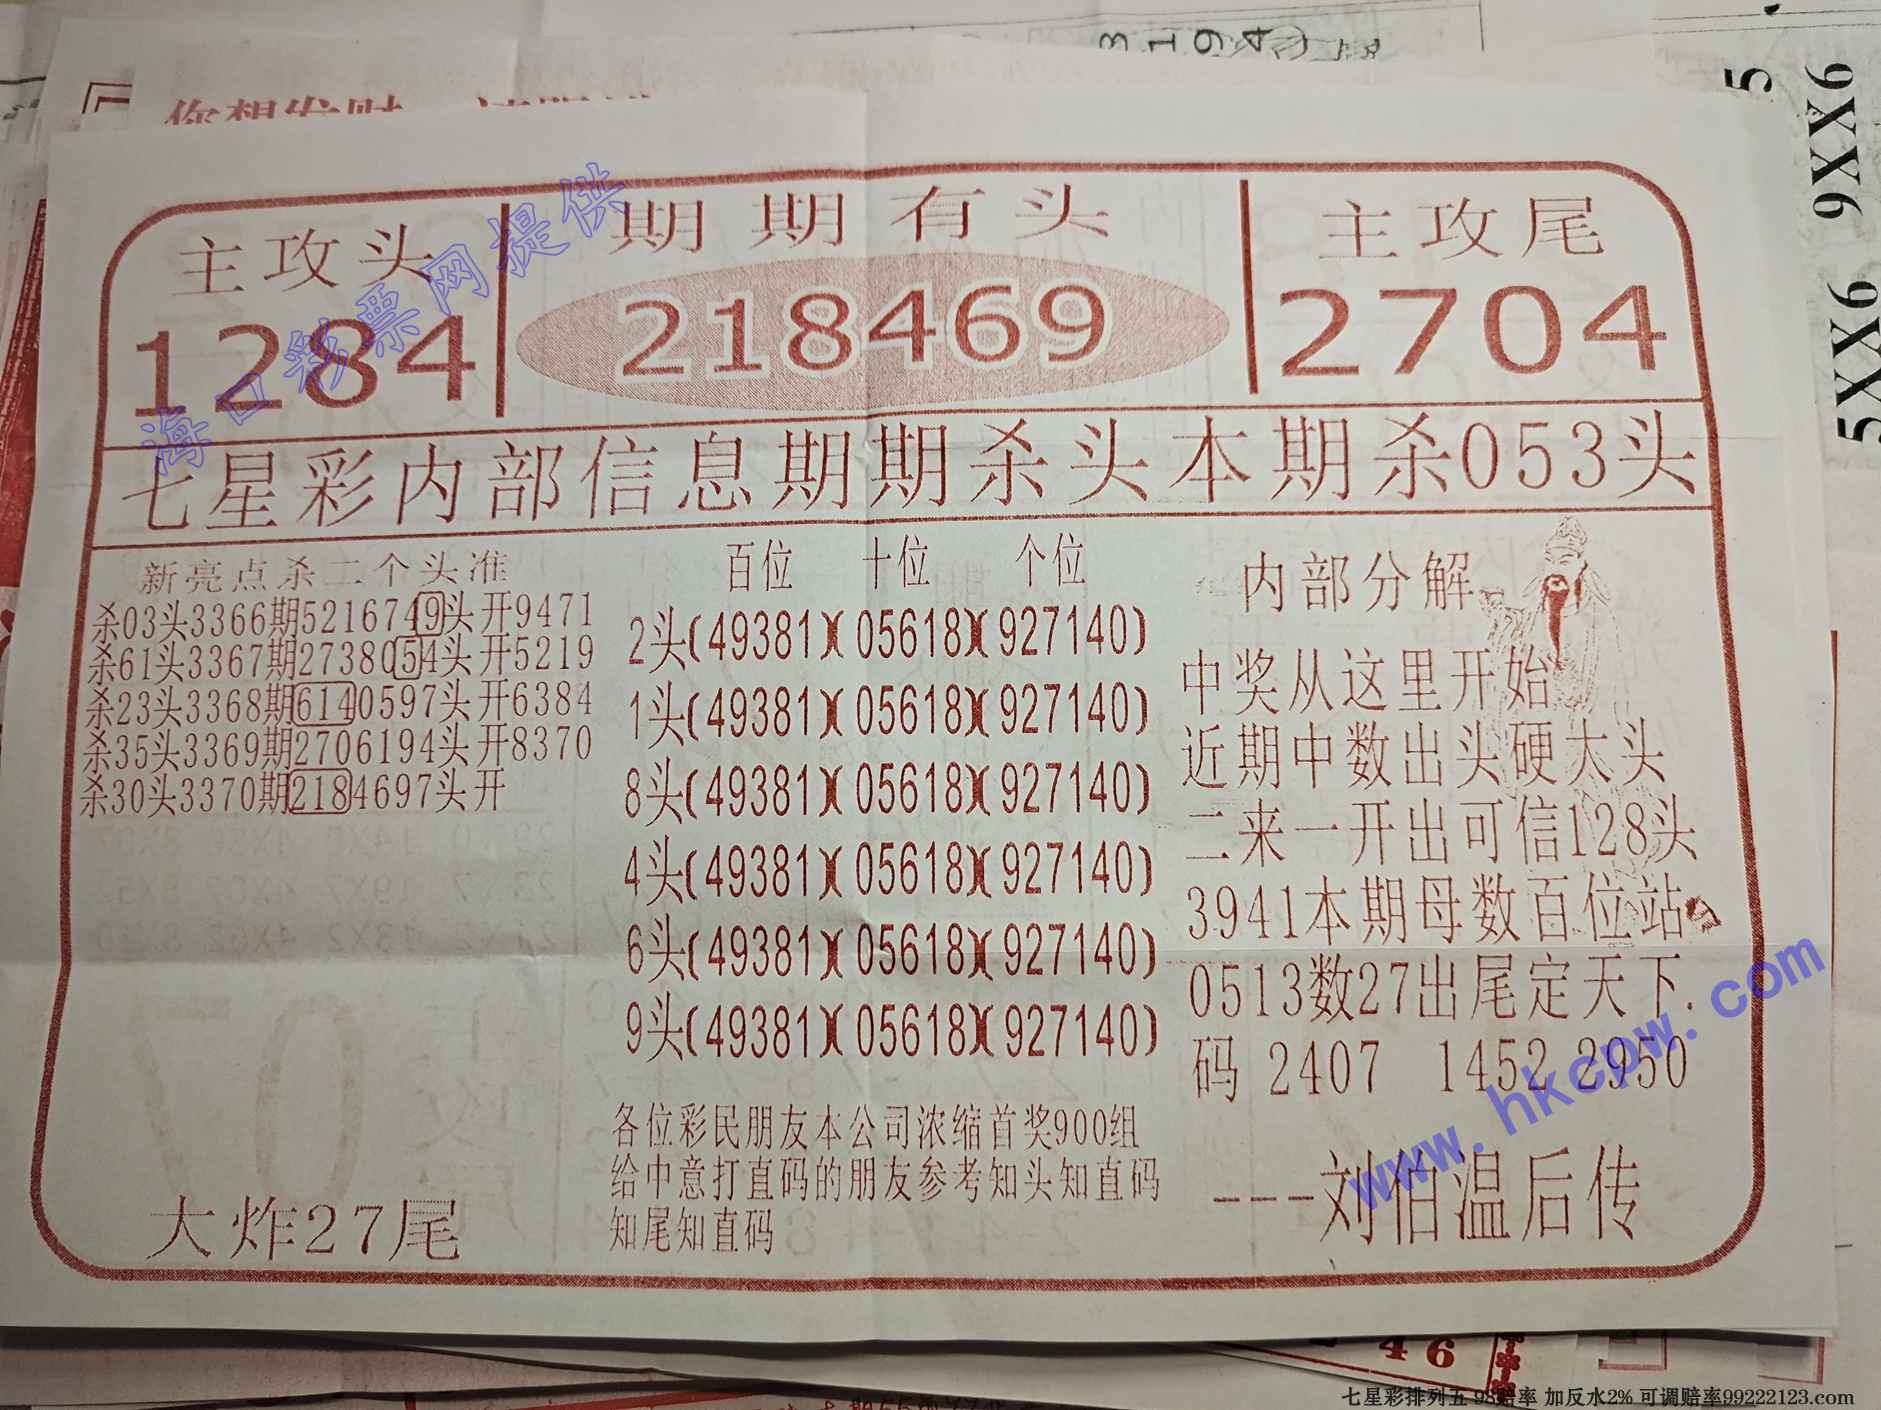 3 1 9 4
你想发财
5 9XX6
5XX6
主攻头 期期有头 主攻尾
1284 218469 2704
海口彩票网提供
七星彩内部信息期期杀头本期杀053头
新亮点杀二个头准
杀03头3366期5216749头开9471
杀61头3367期2738054头开5219
杀23头3368期6140597头开6384
杀35头3369期2706194头开8370
杀30头3370期2184697头开
大炸27尾
百位 十位 个位
2头(49381)(05618)(927140)
1头(49381)(05618)(927140)
8头(49381)(05618)(927140)
4头(49381)(05618)(927140)
6头(49381)(05618)(927140)
9头(49381)(05618)(927140)
各位彩民朋友本公司浓缩首奖900组
给中意打直码的朋友参考知头知直码
知尾知直码
内部分解
中奖从这里开始
近期中数出头硬大头
二来一开出可信128头
3941本期母数百位站
0513数27出尾定天下.
码 2407 1452 2950
---刘伯温后传
www.hkcpw.com
46
七星彩排列五 98赔率 加反水2% 可调赔率99222123.com